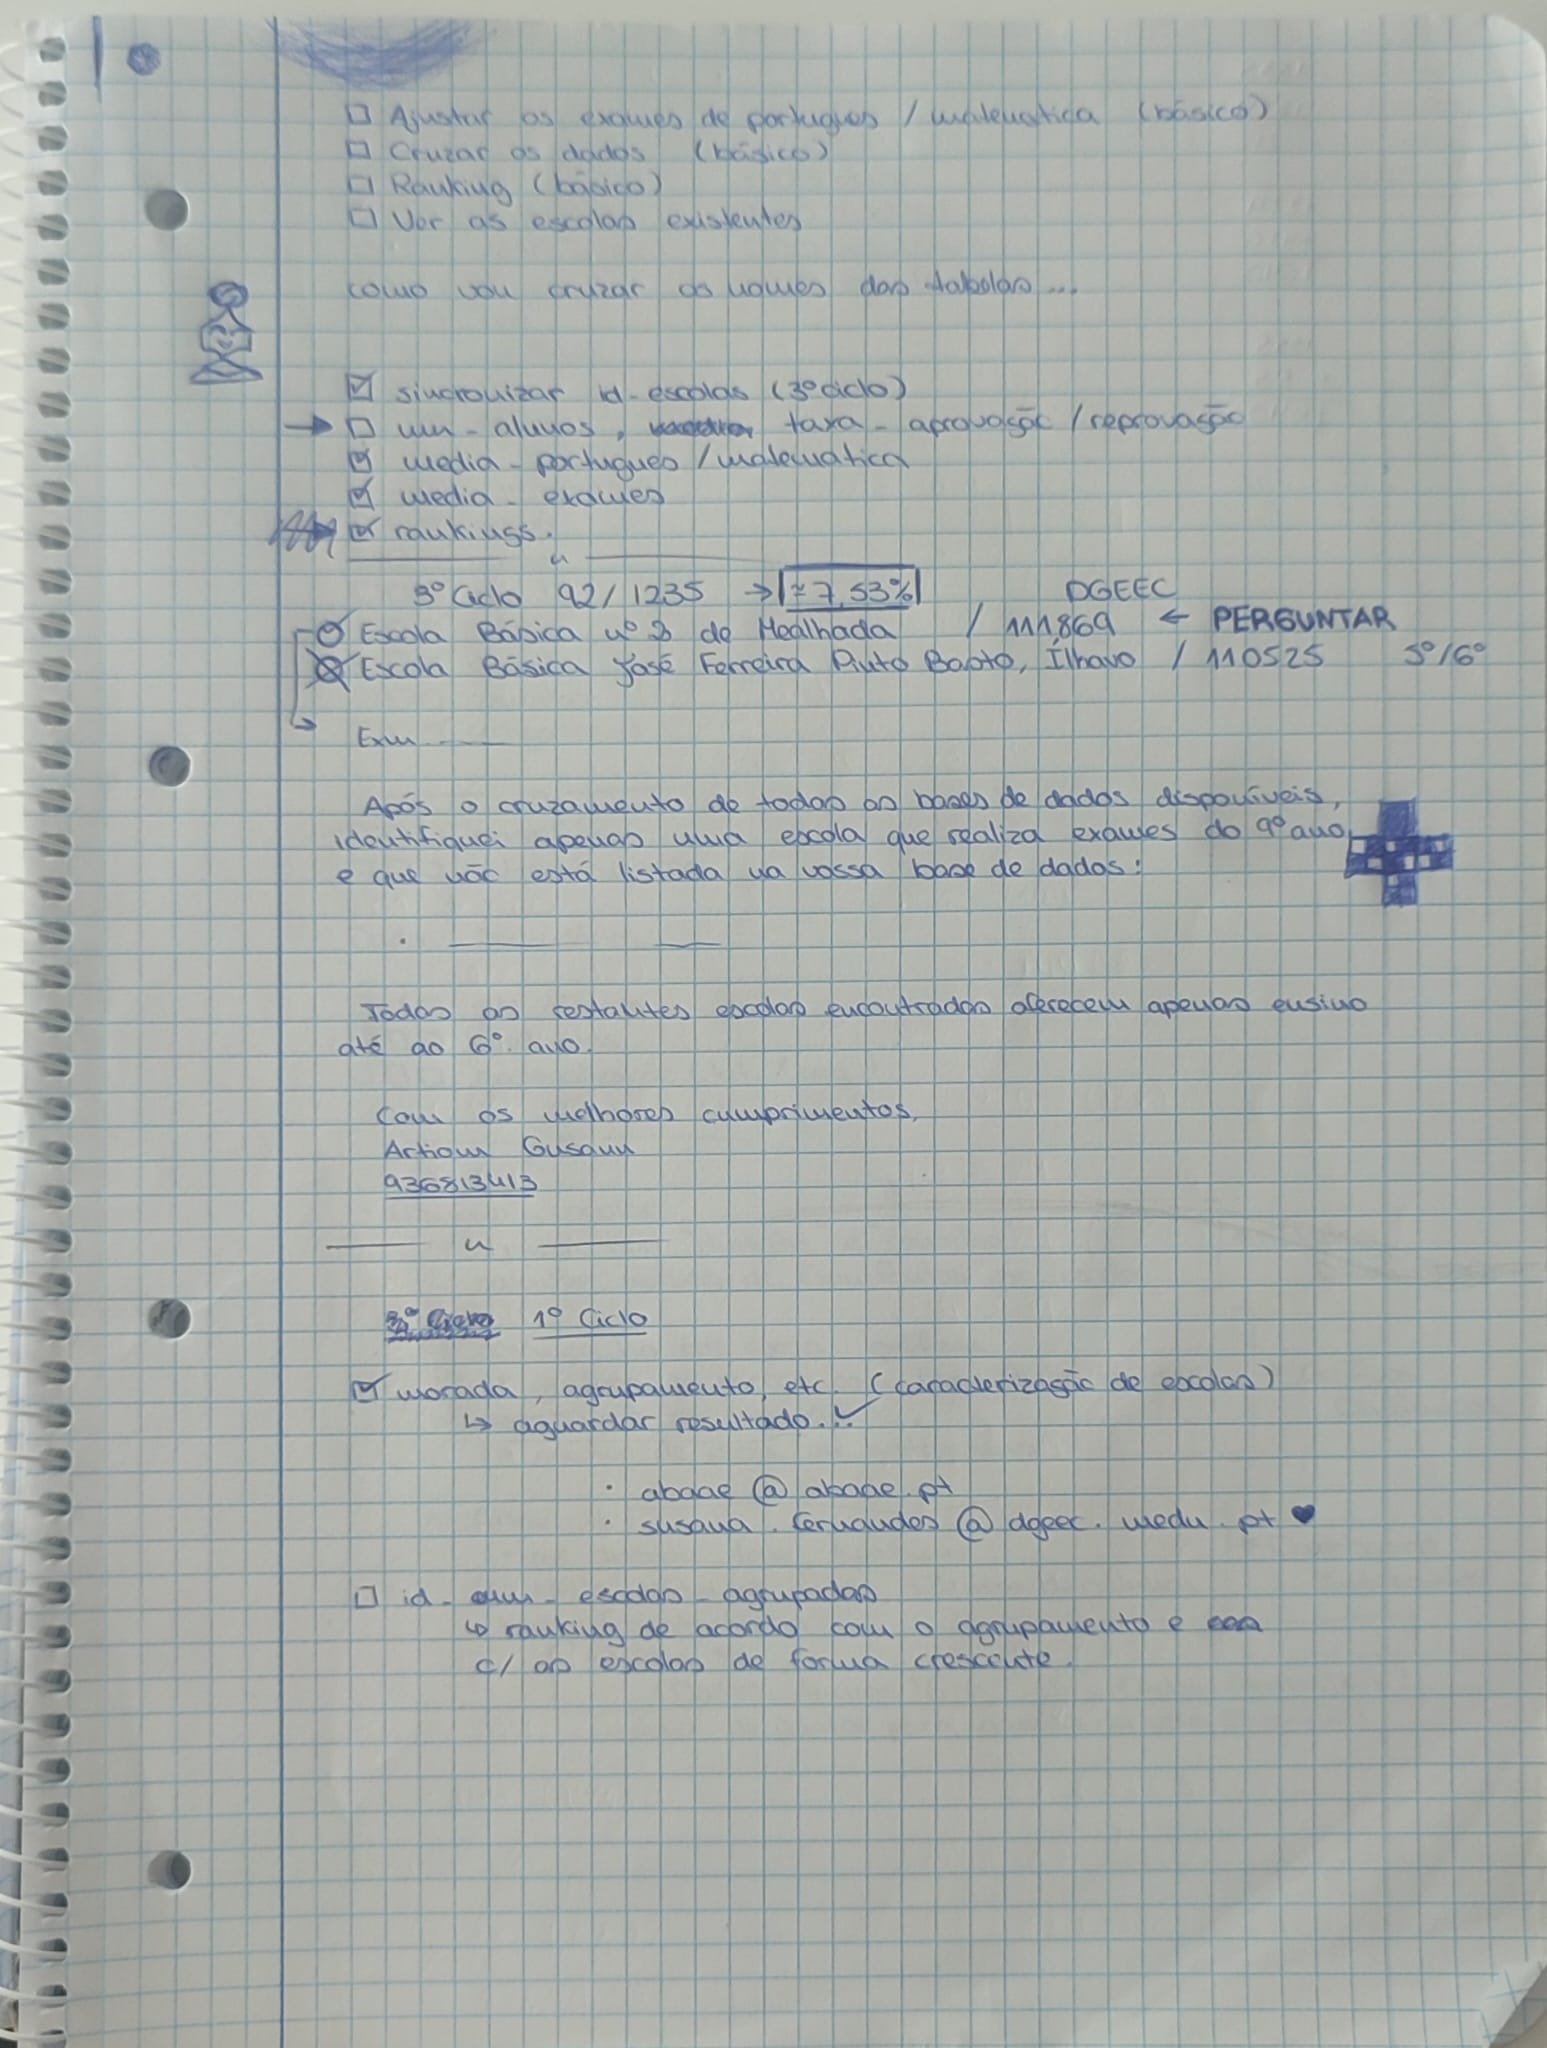 □ Ajustar os exames de portugues / matematica (básico)
□ Cruzar os dados (básico)
□ Ranking (básico)
□ Ver as escolas existentes
como vou cruzar os nomes das tabelas...
☑ sincronizar id-escolas (3º ciclo)
→ □ num-alunos, taxa-aprovação / reprovação
☑ media-portugues / matematica
☑ media-exames
☑ rankings.
3º Ciclo 92/1235 → ≈ 7,53% DGEEC
Escola Básica nº 2 de Mealhada / 111869 ← PERGUNTAR
Escola Básica José Ferreira Pinto Basto, Ílhavo / 110525 5º/6º
Exm
Após o cruzamento de todas as bases de dados disponíveis,
identifiquei apenas uma escola que realiza exames do 9º ano,
e que não está listada na vossa base de dados:
Todas as restantes escolas encontradas oferecem apenas ensino
até ao 6º. ano.
Com os melhores cumprimentos,
Artiom Gusanu
936813413
3º Ciclo 1º Ciclo
☑ morada, agrupamento, etc. (caracterização de escolas)
↳ aguardar resultado... ✓
· abaae @ abaae.pt
· susana.fernandes @ dgeec.medu.pt ♥
□ id- -escolas-agrupadas
↳ ranking de acordo com o agrupamento e
c/ as escolas de forma crescente.